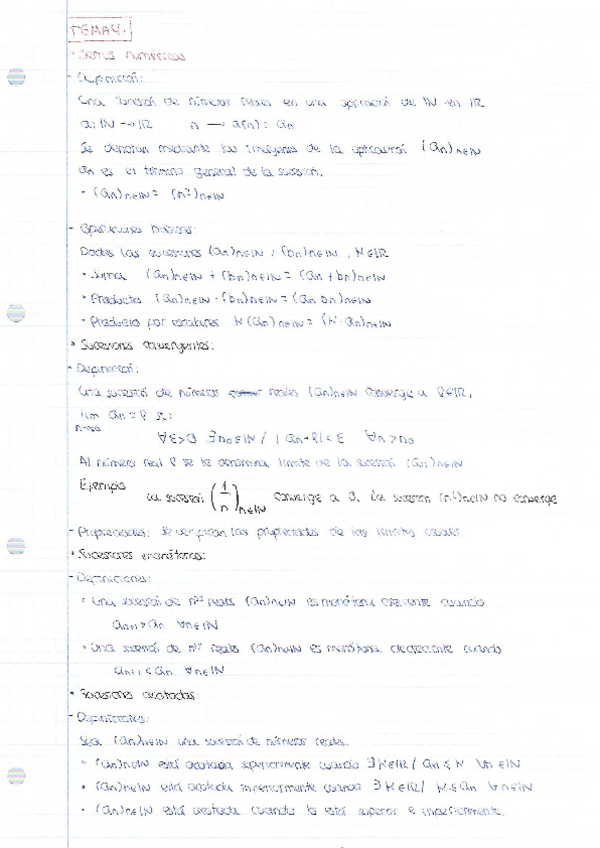 TEMA 4.
• Series numéricas
- Definición:
Una sucesión de números reales en una aplicación de ℕ en ℝ
a: ℕ → ℝ n → a(n) = an
Se denotan mediante las imágenes de la aplicación (an)n∈ℕ
an es el término general de la sucesión.
- (an)n∈ℕ = (n²)n∈ℕ
- Operaciones básicas:
Dadas las sucesiones (an)n∈ℕ, (bn)n∈ℕ, K∈ℝ
• Suma (an)n∈ℕ + (bn)n∈ℕ = (an + bn)n∈ℕ
• Producto (an)n∈ℕ · (bn)n∈ℕ = (an bn)n∈ℕ
• Producto por escalares K(an)n∈ℕ = (K·an)n∈ℕ
• Sucesiones convergentes:
- Definición:
Una sucesión de números reales (an)n∈ℕ converge a ℓ∈ℝ,
lim an = ℓ si:
n→∞
∀ε>0 ∃n₀∈ℕ / |an-ℓ|<ε ∀n>n₀
Al número real ℓ se le denomina límite de la sucesión (an)n∈ℕ
Ejemplo
La sucesión (1/n)n∈ℕ converge a 0, la sucesión (n²)n∈ℕ no converge
- Propiedades: Se verifican las propiedades de los límites
• Sucesiones monótonas:
- Definiciones:
• Una sucesión de nºs reales (an)n∈ℕ es monótona creciente cuando
an+1 > an ∀n∈ℕ
• Una sucesión de nºs reales (an)n∈ℕ es monótona decreciente cuando
an+1 < an ∀n∈ℕ
• Sucesiones acotadas:
- Definiciones:
Sea (an)n∈ℕ una sucesión de números reales.
• (an)n∈ℕ está acotada superiormente cuando ∃K∈ℝ / an ≤ K ∀n∈ℕ
• (an)n∈ℕ está acotada inferiormente cuando ∃K∈ℝ / K ≤ an ∀n∈ℕ
• (an)n∈ℕ está acotada cuando lo está superior e inferiormente.